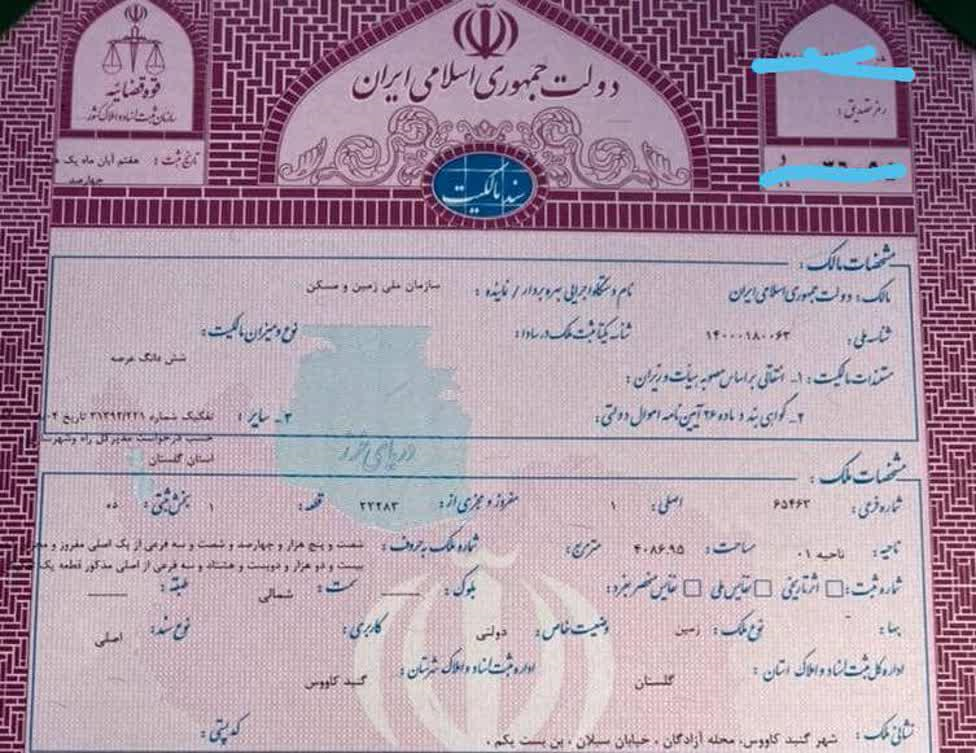 دولت جمهوری اسلامی ایران
قوه قضائیه
سازمان ثبت اسناد و املاک کشور
رمز تصدیق :
تاریخ ثبت : هفتم آبان ماه یک ه
چهارصد
سند مالکیت
مشخصات مالک :
مالک : دولت جمهوری اسلامی ایران نام دستگاه اجرایی بهره بردار / نماینده : سازمان ملی زمین و مسکن
شناسه ملی : ۱۴۰۰۰۱۸۰۰۶۳ شناسه یکتا ثبت ملک در سادا : نوع و میزان مالکیت :
شش دانگ عرصه
مستندات مالکیت : ۱- انتقالی بر اساس مصوبه هیأت وزیران :
۲- گواهی بند د ماده ۲۶ آیین نامه اموال دولتی : ۳- سایر : تفکیک شماره ۳۱۳۹۲/۲۲۱ تاریخ ۰۲
حسب درخواست مدیرکل راه وشهرسا
استان گلستان
دریای خزر
مشخصات ملک :
شماره فرعی : ۶۵۴۶۳ اصلی : ۱ مفروز و مجزی از : ۲۲۲۸۳ قطعه : ۱ بخش ثبتی : ده
ناحیه : ناحیه ۰۱ مساحت : ۴۰۸۶.۹۵ متر مربع : شماره ملک به حروف : شصت و پنج هزار و چهارصد و شصت و سه فرعی از یک اصلی مفروز و مج
بیست و دو هزار و دویست و هشتاد و سه فرعی از اصلی مذکور قطعه یک
شماره ثبت : اثر تاریخی نفایس ملی نفایس منحصر بفرد : بلوک : سمت : شمالی طبقه :
بها : نوع ملک : زمین وضعیت خاص : دولتی کاربری : نوع سند : اصلی
اداره کل ثبت اسناد و املاک استان : گلستان اداره ثبت اسناد و املاک شهرستان : گنبد کاووس
نشانی ملک : شهر گنبد کاووس، محله آزادگان ، خیابان سبلان ، بن بست یکم ، کد پستی :